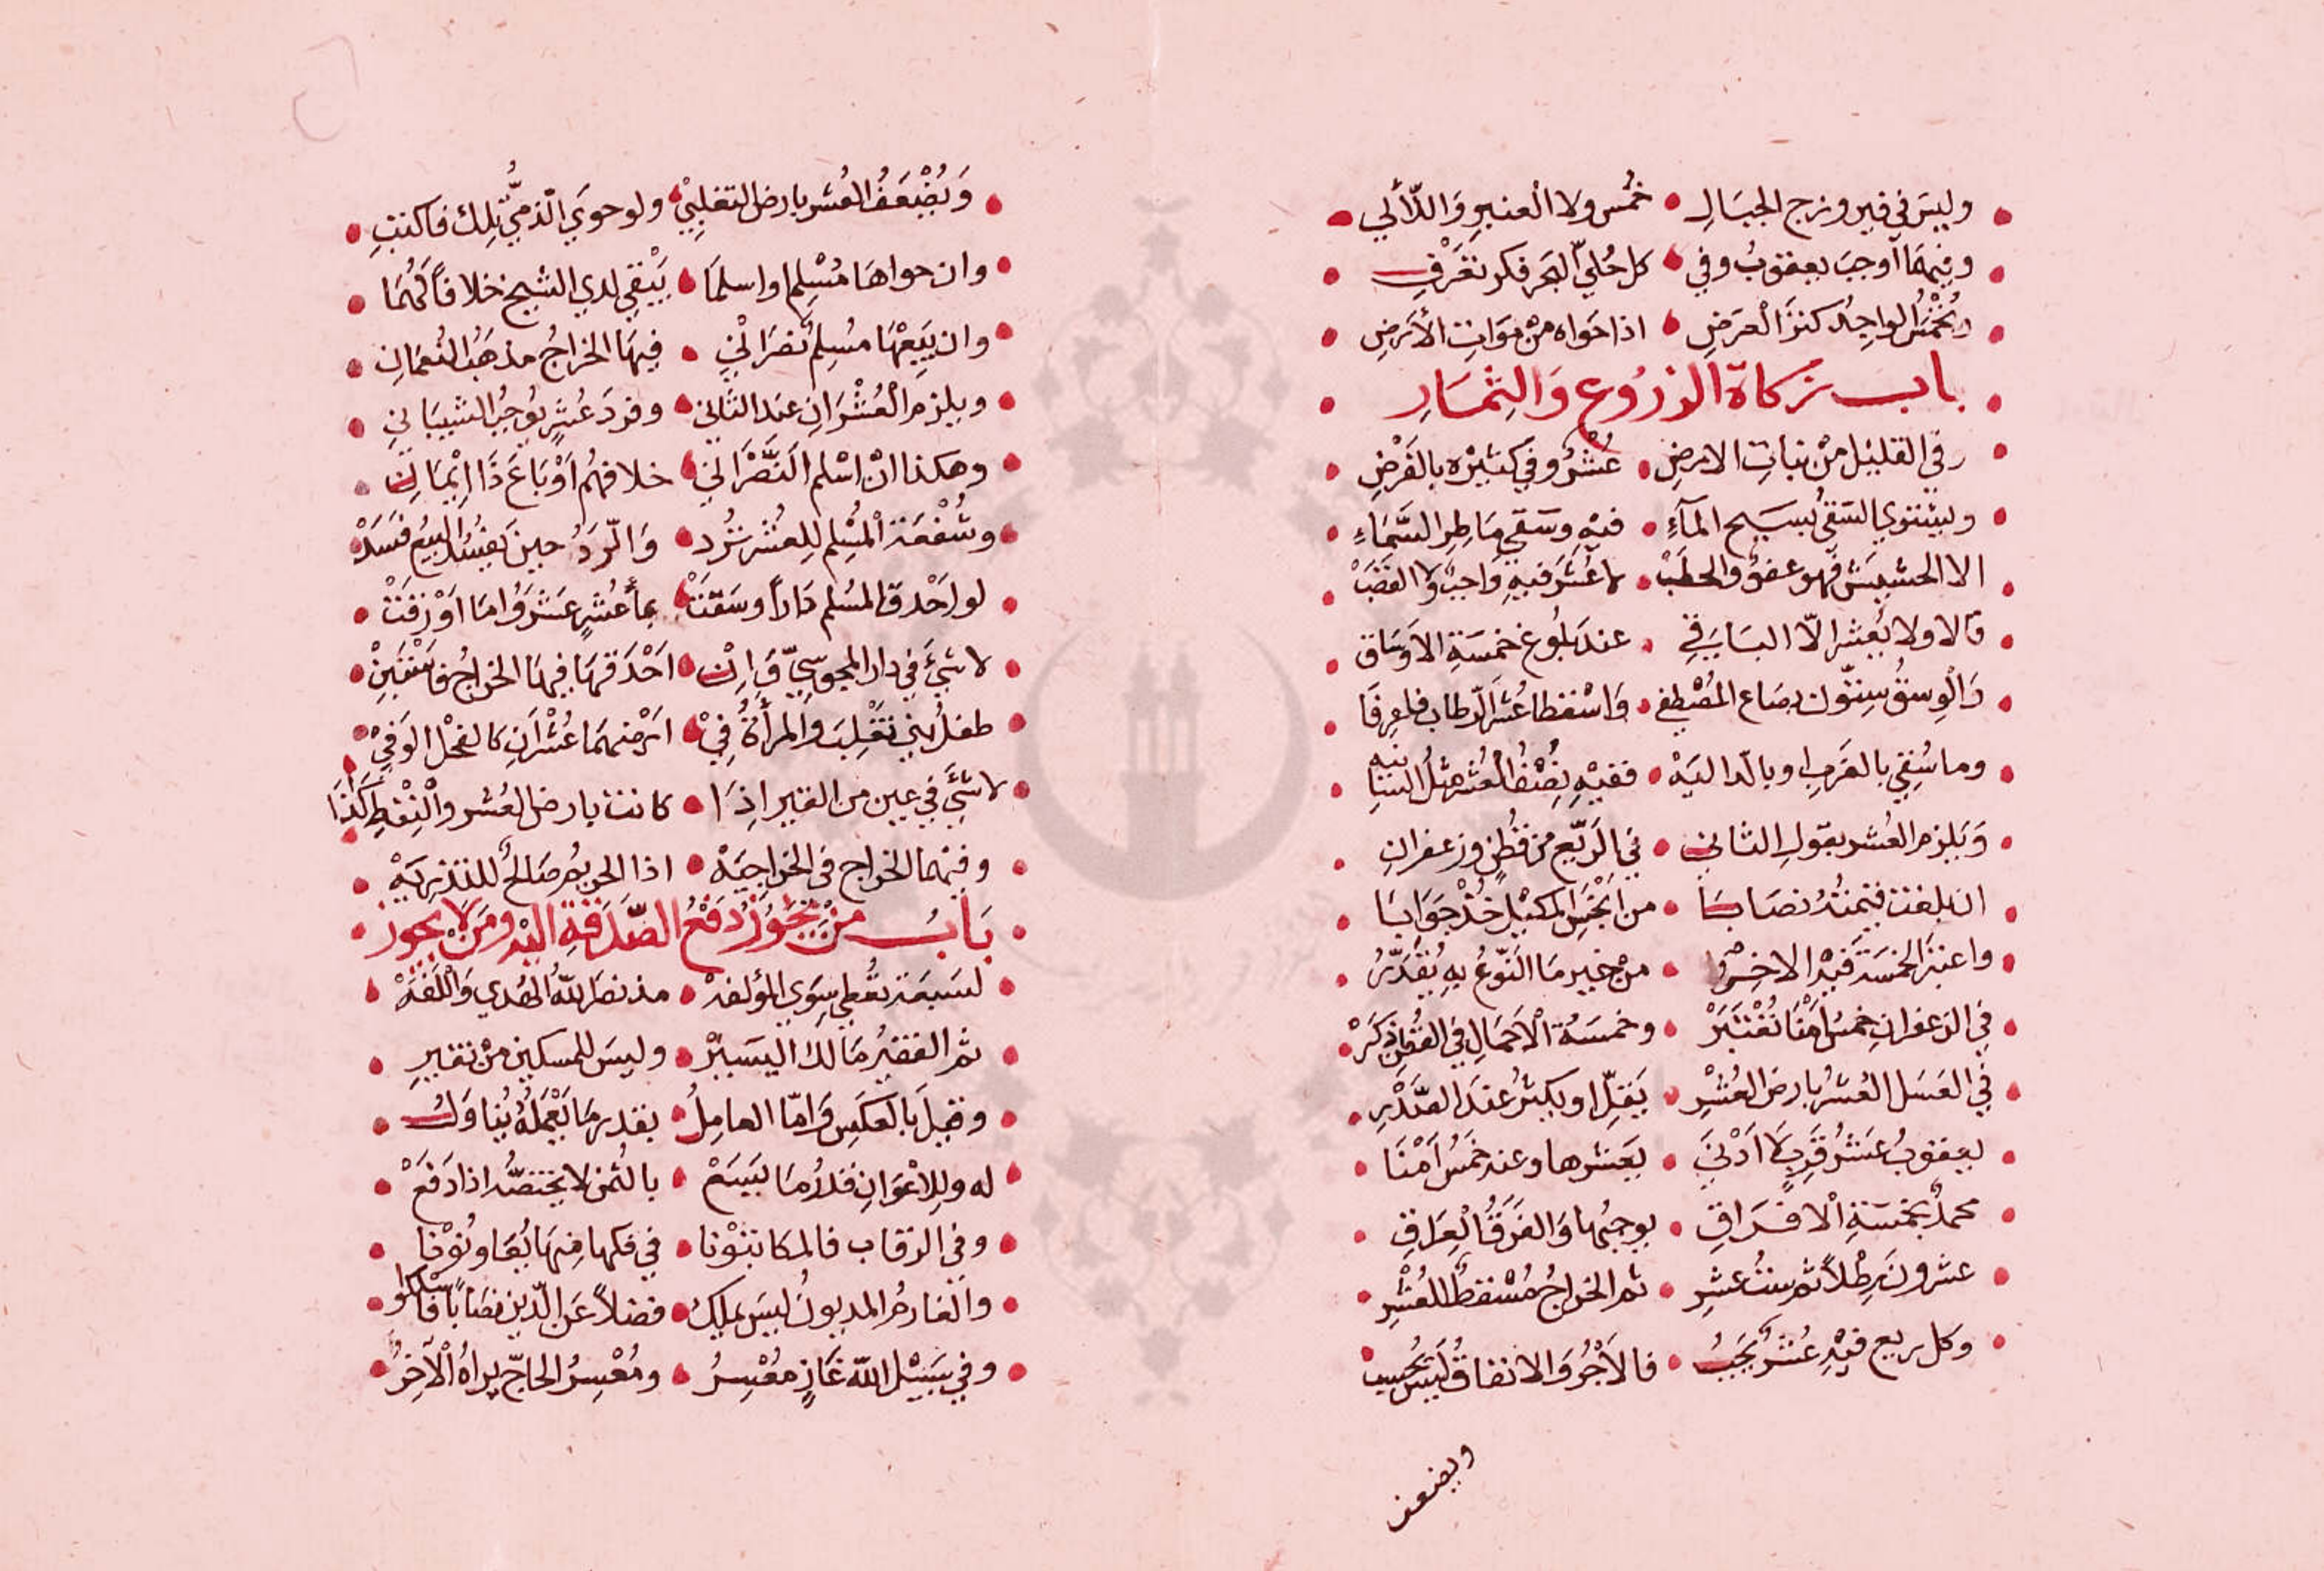 وليسَ في فيروزج الجبَالِ • خُمس ولا العنبرِ وَاللّألي
وفيهمَا أوجبَ يعقوبُ وفي • كل حُليّ البحر فكر تغرفِ
ويُخمّسُ الواجِدُ كنزَ العَرَضِ • اذا حَواه مِنْ مَوَاتِ الأرَضِ
باب زكاة الزرُوع وَالثِمَارِ
وفي القليل مِنْ نبات الارضِ • عُشْرٌ وفي كثيرْه بالفَرْضِ
ويستوي السَقيُ بسَيح المآءِ • فيهِ وسَقي مَاطِرِ السَّمَاءِ
الا الحشيش فهو عفوٌ والحطَبْ • لا عُشرَ فيهِ وَاجبٌ ولا القصَبْ
قالا ولا يُعشر الّا البَاقي • عندَ بلُوغ خمسَةِ الاوسَاق
وَالوسقُ ستّون بصَاع المُصْطفى • وَاسْقطا عُشرَ الرّطاب فاعرِفَا
وما سُقي بالغَربِ او بالدّاليَهْ • ففيهِ نِصْفُ العُشر مثلُ السَانيه
وَيلزم العُشر بقولِ الثاني • في الرَيّع من قُطنٍ وزعفرانِ
ان بلغت قيمتُهُ نصَابَا • من اَبْخَسِ المكيْلِ خُذْ جَوَابَا
واعتبَر الخمسَةَ فيهْ الاخِرُ • مِنْ خير مَا النّوعُ بهِ يُقدَّرُ
في الزعفرانِ خمسُ اَمْنا تُعْتَبَرْ • وخمسَةُ الْاَحمَالِ في القُطن ذكَرْ
في العَسَل العُشرُ بارضِ العُشْرِ • يَقلّ او يكثرُ عندَ الصَّدْرِ
يعقوبُ عَشْرُ قِرَبٍ لَا اَدْنَى • يَعشرها وعنه خَمسُ اَمْنَا
محمدٌ بخمسَةِ الافرَاقِ • يوجبُها وَالفَرقُ العِرَاقي
عشرون رِطْلاً ثم ستُ عشرِ • ثم الخراجُ مُسْقطٌ للعُشْرِ
وكل ريع فيْهِ عُشرٌ يَجَبُ • فالاَجْرُ وَالانفاقُ لَيسَ يُحسَب
ويضعف
وَيُضْعَفُ العُشر بارض التغلِبيْ • ولو حوىَ الذميُّ تِلك فاكتبِ
وان حواهَا مُسْلِم او اسلمَا • يَبْقي لدي الشيخ خلافاً لهُمَا
وان يَبِعْهَا مُسْلِم نَصْرَاني • فيهَا الخراجُ مذهَبُ النُعمَانِ
ويلزم الْعُشْرَانِ عند الثاني • وفردَ عُشرٍ يوُجبُ الشيبَاني
وهكذا انْ اسْلم النَّصْرَاني • خلافهُم اَوْ بَاعَ ذَا اِيْمَانِ
وشُفْعَة الْمُسْلِم لِلعُشر تَرُد • وَالرّدَ حينَ يفسُد البيعُ فسَدْ
لو اَحْدق المسُلم دَاراً وسَقَتْ • بمأ عُشرٍ عَشَرُوا مَا اَوْرَقَتْ
لا شيَ في دار المجوسيّ وَاِنْ • اَحْدَقهَا فيهَا الخراجُ فاسْتَبِنْ
طفلُ بني تَغْلِبَ والمرأةُ فيْ • ارْضهمَا عُشْرَانِ كالفحْل الوَفيْ
لا شيَ في عين من القير اِذَا • كانت بارض العُشر والنِفْطِ كَذَا
وفيهما الخراج في الخرَاجيَهْ • اذا الحريمُ صَالحٌ للتذريَهْ
بَابُ مَنْ يَجُوُزُ دَفعُ الصَّدَقةِ اليْه ومَنْ لا يجوز
لسَبعَة تُعْطي سِوَي المؤلفهْ • مذ نصَرَ اللّه الهُدي وَاللّفَهْ
ثم الفقيرُ مَالك اليسَيرْ • وليسَ للمسكين مِنْ نقيرِ
وقيلَ بالعكسِ وَامّا العامِلُ • بقدر مَا يَعْملهُ يُناوَلُ
له وللاعْوَانِ قدرُ مَا يَسَعْ • بالثُمن لا يختصُّ اذا دَفعْ
وفي الرقاب فالمكاتبْونا • في فكها منهَا يُعَاوَنُوْنا
والغارمُ المديونُ ليسَ يملكِ • فضلاً عَن الدّين نصَاباً فاسْلكوا
وفي سَبيْل اللّه غَازٍ مُعْسِرُ • ومُعْسِرُ الحاجّ يراهُ الْآخَرُ